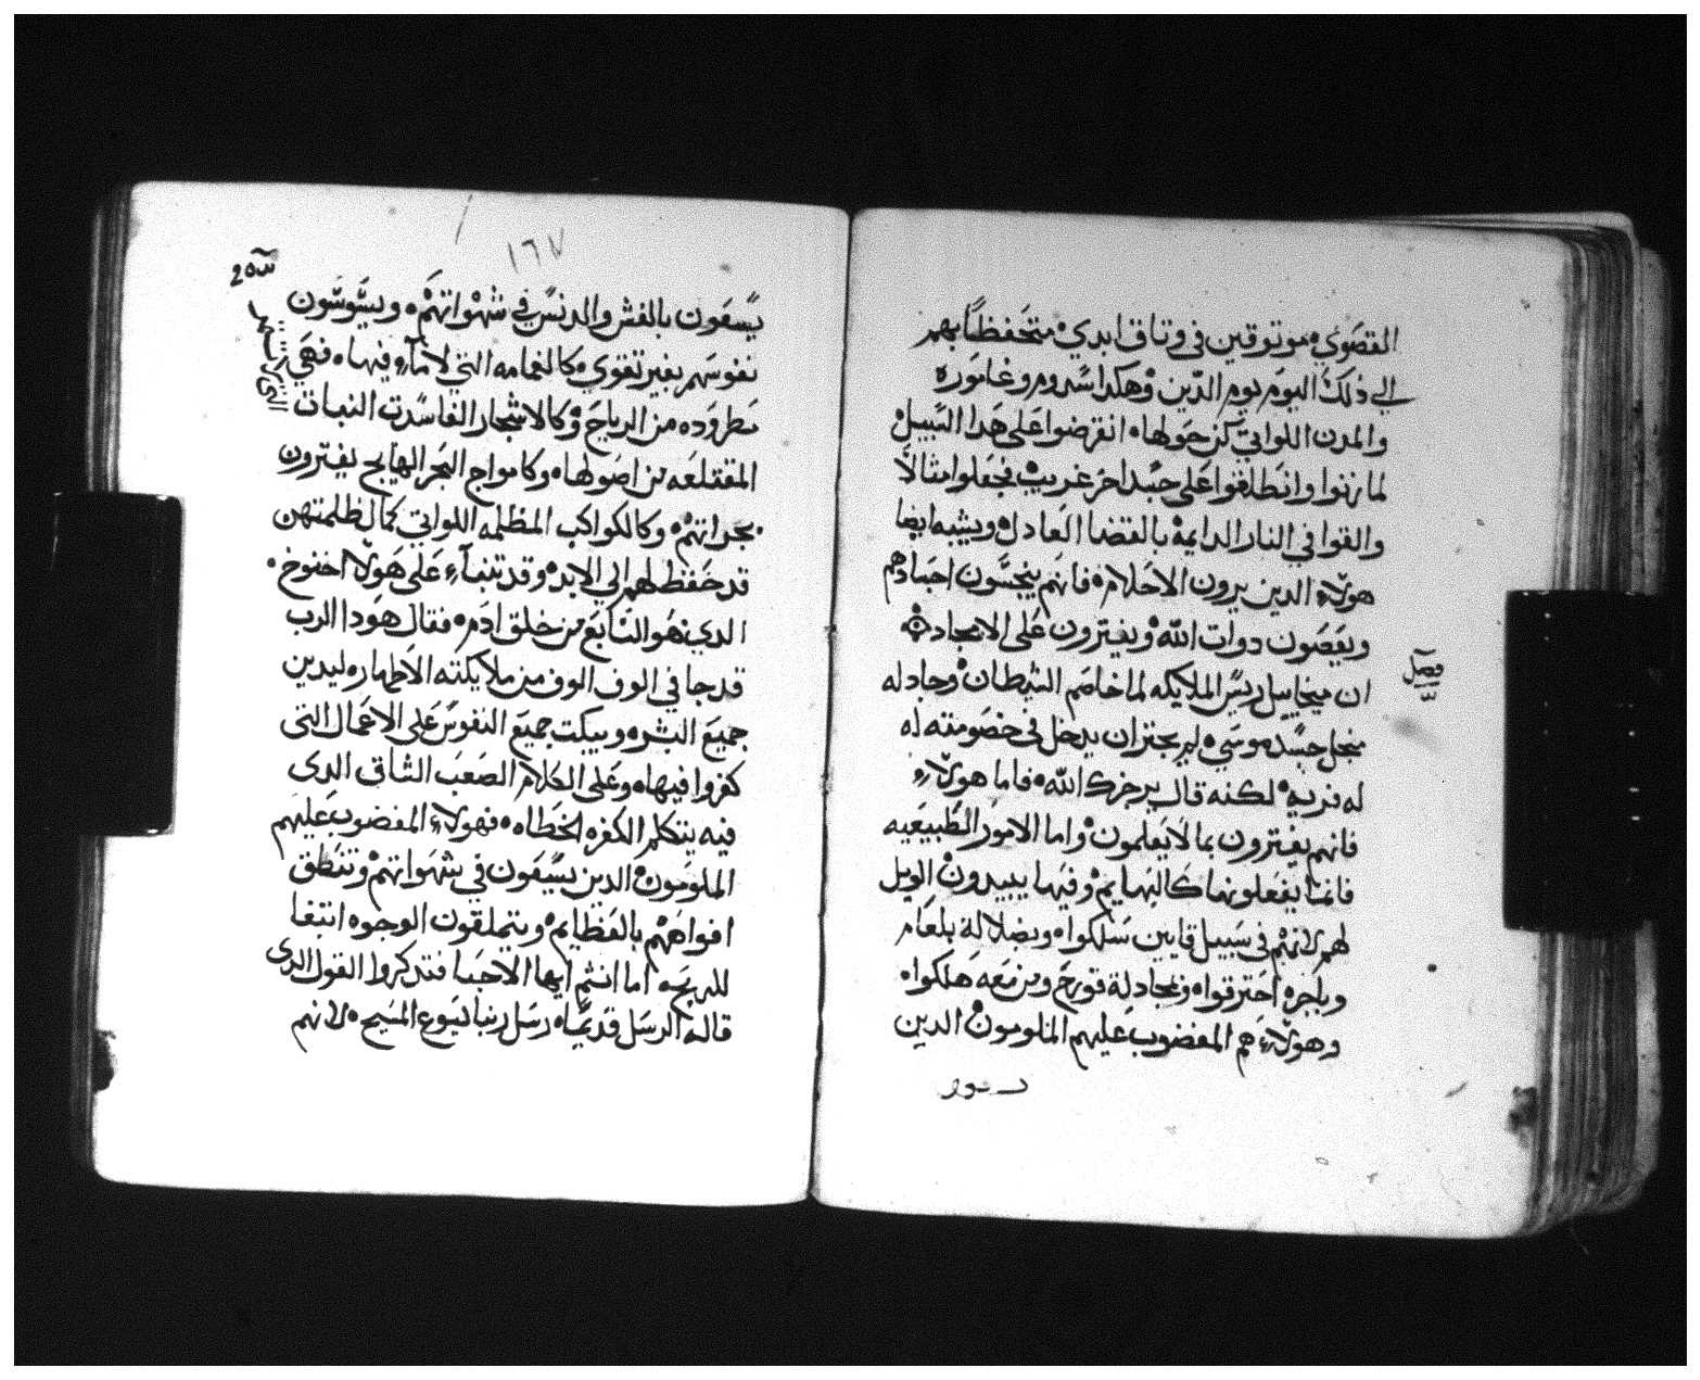 القصوي موتوقين في وتاق ابدي متحفظا بهم
الي ذلك اليوم يوم الدين وهكدا سدوم وغامورة
والمدن اللواتي كن حولها انقرضوا على هدا السبيل
لما زنوا وانطلقوا على جسد اخر غريب فجعلوا مثالا
والقوا في النار الدايمة بالقضا العادل ويشبه ايضا
هولاء الدين يرون الاحلام فانهم ينجسون اجسادهم
ويعصون دوات الله ويفترون على الامجاد
فصل
ان ميخاييل ريس الملايكه لما خاصم الشيطان وجادله
منجل جسد موسي لم يجتز ان يدخل في خصومته له
له فريه لكنه قال يزجرك الله فاما هولاء
فانهم يفترون بما لا يعلمون واما الامور الطبيعيه
فانما يفعلونها كالبهايم وفيها يبيدون الويل
لهم لانهم في سبيل قايين سلكوا وبضلالة بلعام
وباجره احترقوا ومجادلة قورح ومن معه هلكوا
وهولاء هم المغضوب عليهم الملومون الدين
١٦٧
يسعون بالغش والدنس في شهواتهم ويسوسون
نفوسهم بغير تقوي كالغمامه التي لا مآء فيها فهي
مطروده من الرياح وكالاشجار الفاسدت النبات
المقتلعه من اصولها وكامواج البحر الهايج يفترون
بجراتهم وكالكواكب المظلمه اللواتي كمال ظلمتهن
قد حفظ لهم الي الابد وقد تنبآء على هولا اخنوخ
الدي هو السابع من خلق ادم فقال هودا الرب
قد جا في الوف الوف من ملايكته الاطهار ليدين
جميع البشر ويبكت جميع النفوس على الاعمال التي
كفروا فيها وعلى الكلام الصعب الشاق الدى
فيه يتكلم الكفره الخطاه فهولاء المغضوب عليهم
الملومون الدين يسعون في شهواتهم وتنطق
افواههم بالعظايم ويتملقون الوجوه ابتغا
للربح اما انتم ايها الاحبا فتدكروا القول الدى
قاله الرسل قديما رسل ربنا يسوع المسيح لانهم